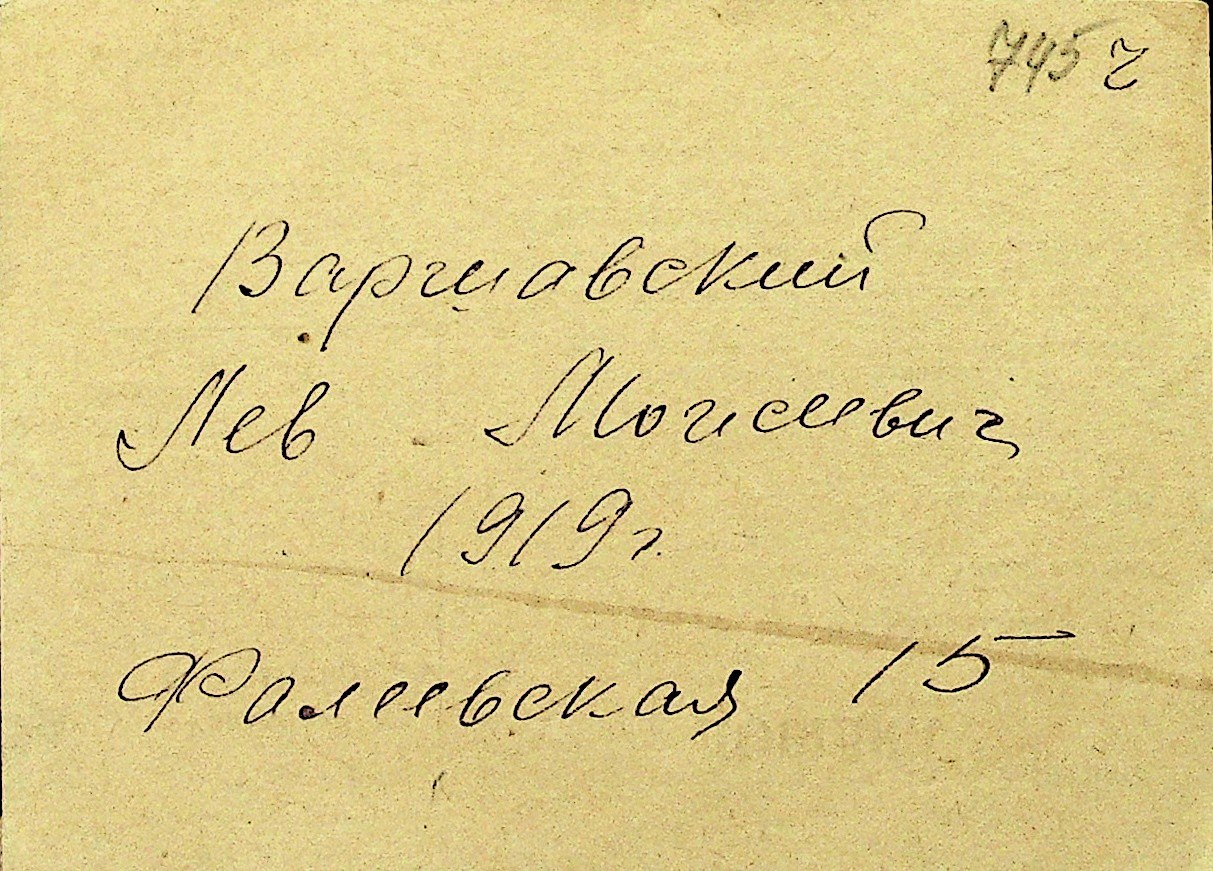 745 г
Варшавский
Лев Моисеевич
1919 г.
Фалеевская 15